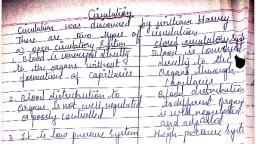 Circulation
Circulation was discovered by william Harvey
There are two types of circulation
a) open circulatory system closed circulatory system
Blood is directly Blood is
to the organs without directly to the
formation of capillaries Organs through
capillaries
2. Blood distribution to Blood distribution
Organs is not well regulated to different organs
or controlled is well regulated
and
3. It is low pressure system High pressure system